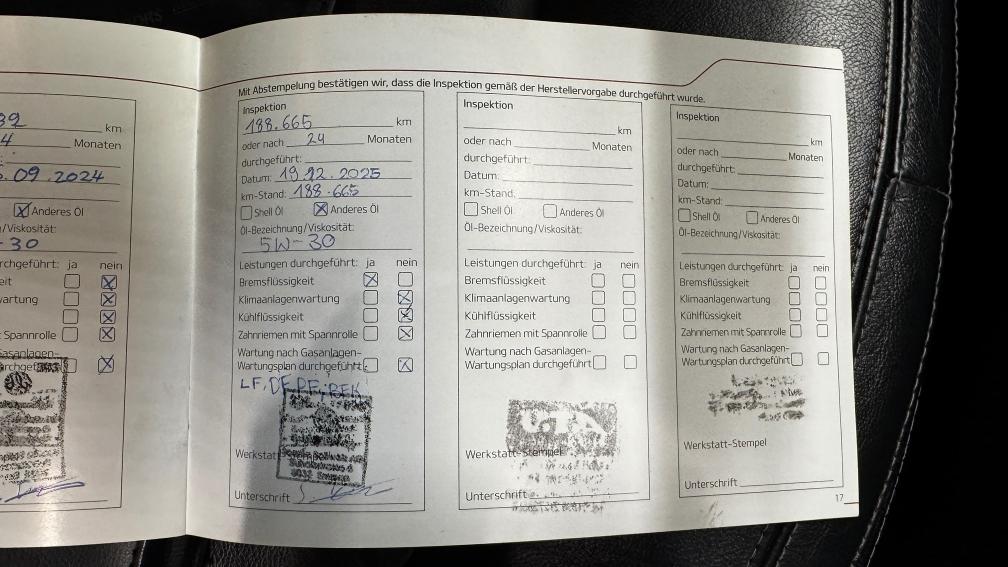 Mit Abstempelung bestätigen wir, dass die Inspektion gemäß der Herstellervorgabe durchgeführt wurde.
39
km
4
Monaten
.09.2024
Anderes Öl
/Viskosität:
-30
rchgeführt: ja nein
eit
wartung
t Spannrolle
Gasanlagen-
Inspektion
188.665 km
oder nach 24 Monaten
durchgeführt:
Datum: 19.12.2025
km-Stand: 188.665
Shell Öl Anderes Öl
Öl-Bezeichnung/Viskosität:
5W-30
Leistungen durchgeführt: ja nein
Bremsflüssigkeit
Klimaanlagenwartung
Kühlflüssigkeit
Zahnriemen mit Spannrolle
Wartung nach Gasanlagen-
Wartungsplan durchgeführt:
LF, DF, PF,
Unterschrift
Inspektion
km
oder nach Monaten
durchgeführt:
Datum:
km-Stand:
Shell Öl Anderes Öl
Öl-Bezeichnung/Viskosität:
Leistungen durchgeführt: ja nein
Bremsflüssigkeit
Klimaanlagenwartung
Kühlflüssigkeit
Zahnriemen mit Spannrolle
Wartung nach Gasanlagen-
Wartungsplan durchgeführt
Werkstatt-Stempel
Unterschrift
Inspektion
km
oder nach Monaten
durchgeführt:
Datum:
km-Stand:
Shell Öl Anderes Öl
Öl-Bezeichnung/Viskosität:
Leistungen durchgeführt: ja nein
Bremsflüssigkeit
Klimaanlagenwartung
Kühlflüssigkeit
Zahnriemen mit Spannrolle
Wartung nach Gasanlagen-
Wartungsplan durchgeführt
Werkstatt-Stempel
Unterschrift
17